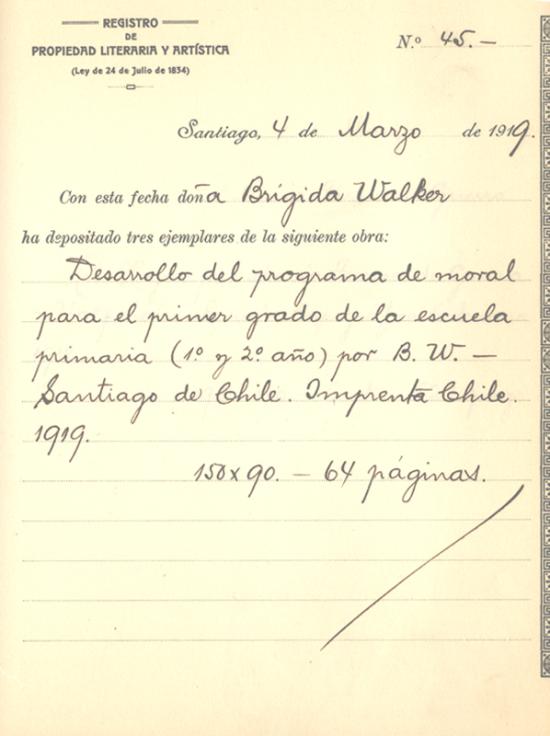 REGISTRO
DE
PROPIEDAD LITERARIA Y ARTÍSTICA
(Ley de 24 de Julio de 1834)
N.º 45.—
Santiago, 4 de Marzo de 1919.
Con esta fecha doña Brígida Walker
ha depositado tres ejemplares de la siguiente obra:
Desarrollo del programa de moral
para el primer grado de la escuela
primaria (1º y 2º año) por B. W. —
Santiago de Chile. Imprenta Chile.
1919.
150 x 90. — 64 páginas.